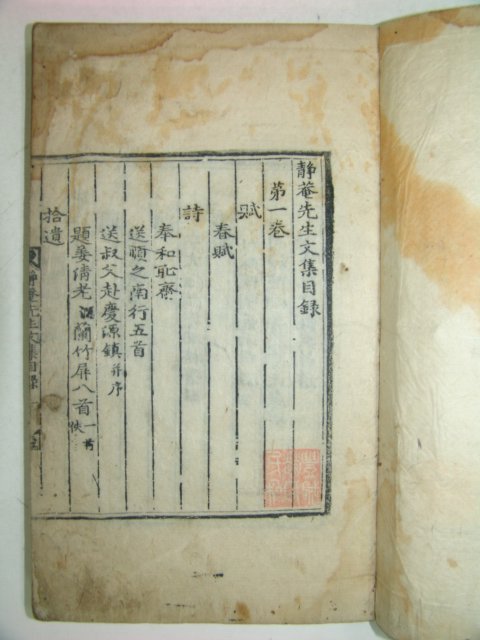 靜菴先生文集目錄
第一卷
賦
春賦
詩
奉和耻齋
送順之南行五首
送叔父赴慶源鎭并序
題姜淸老蘭竹屛八首一首佚
拾遺
靜菴先生文集目錄